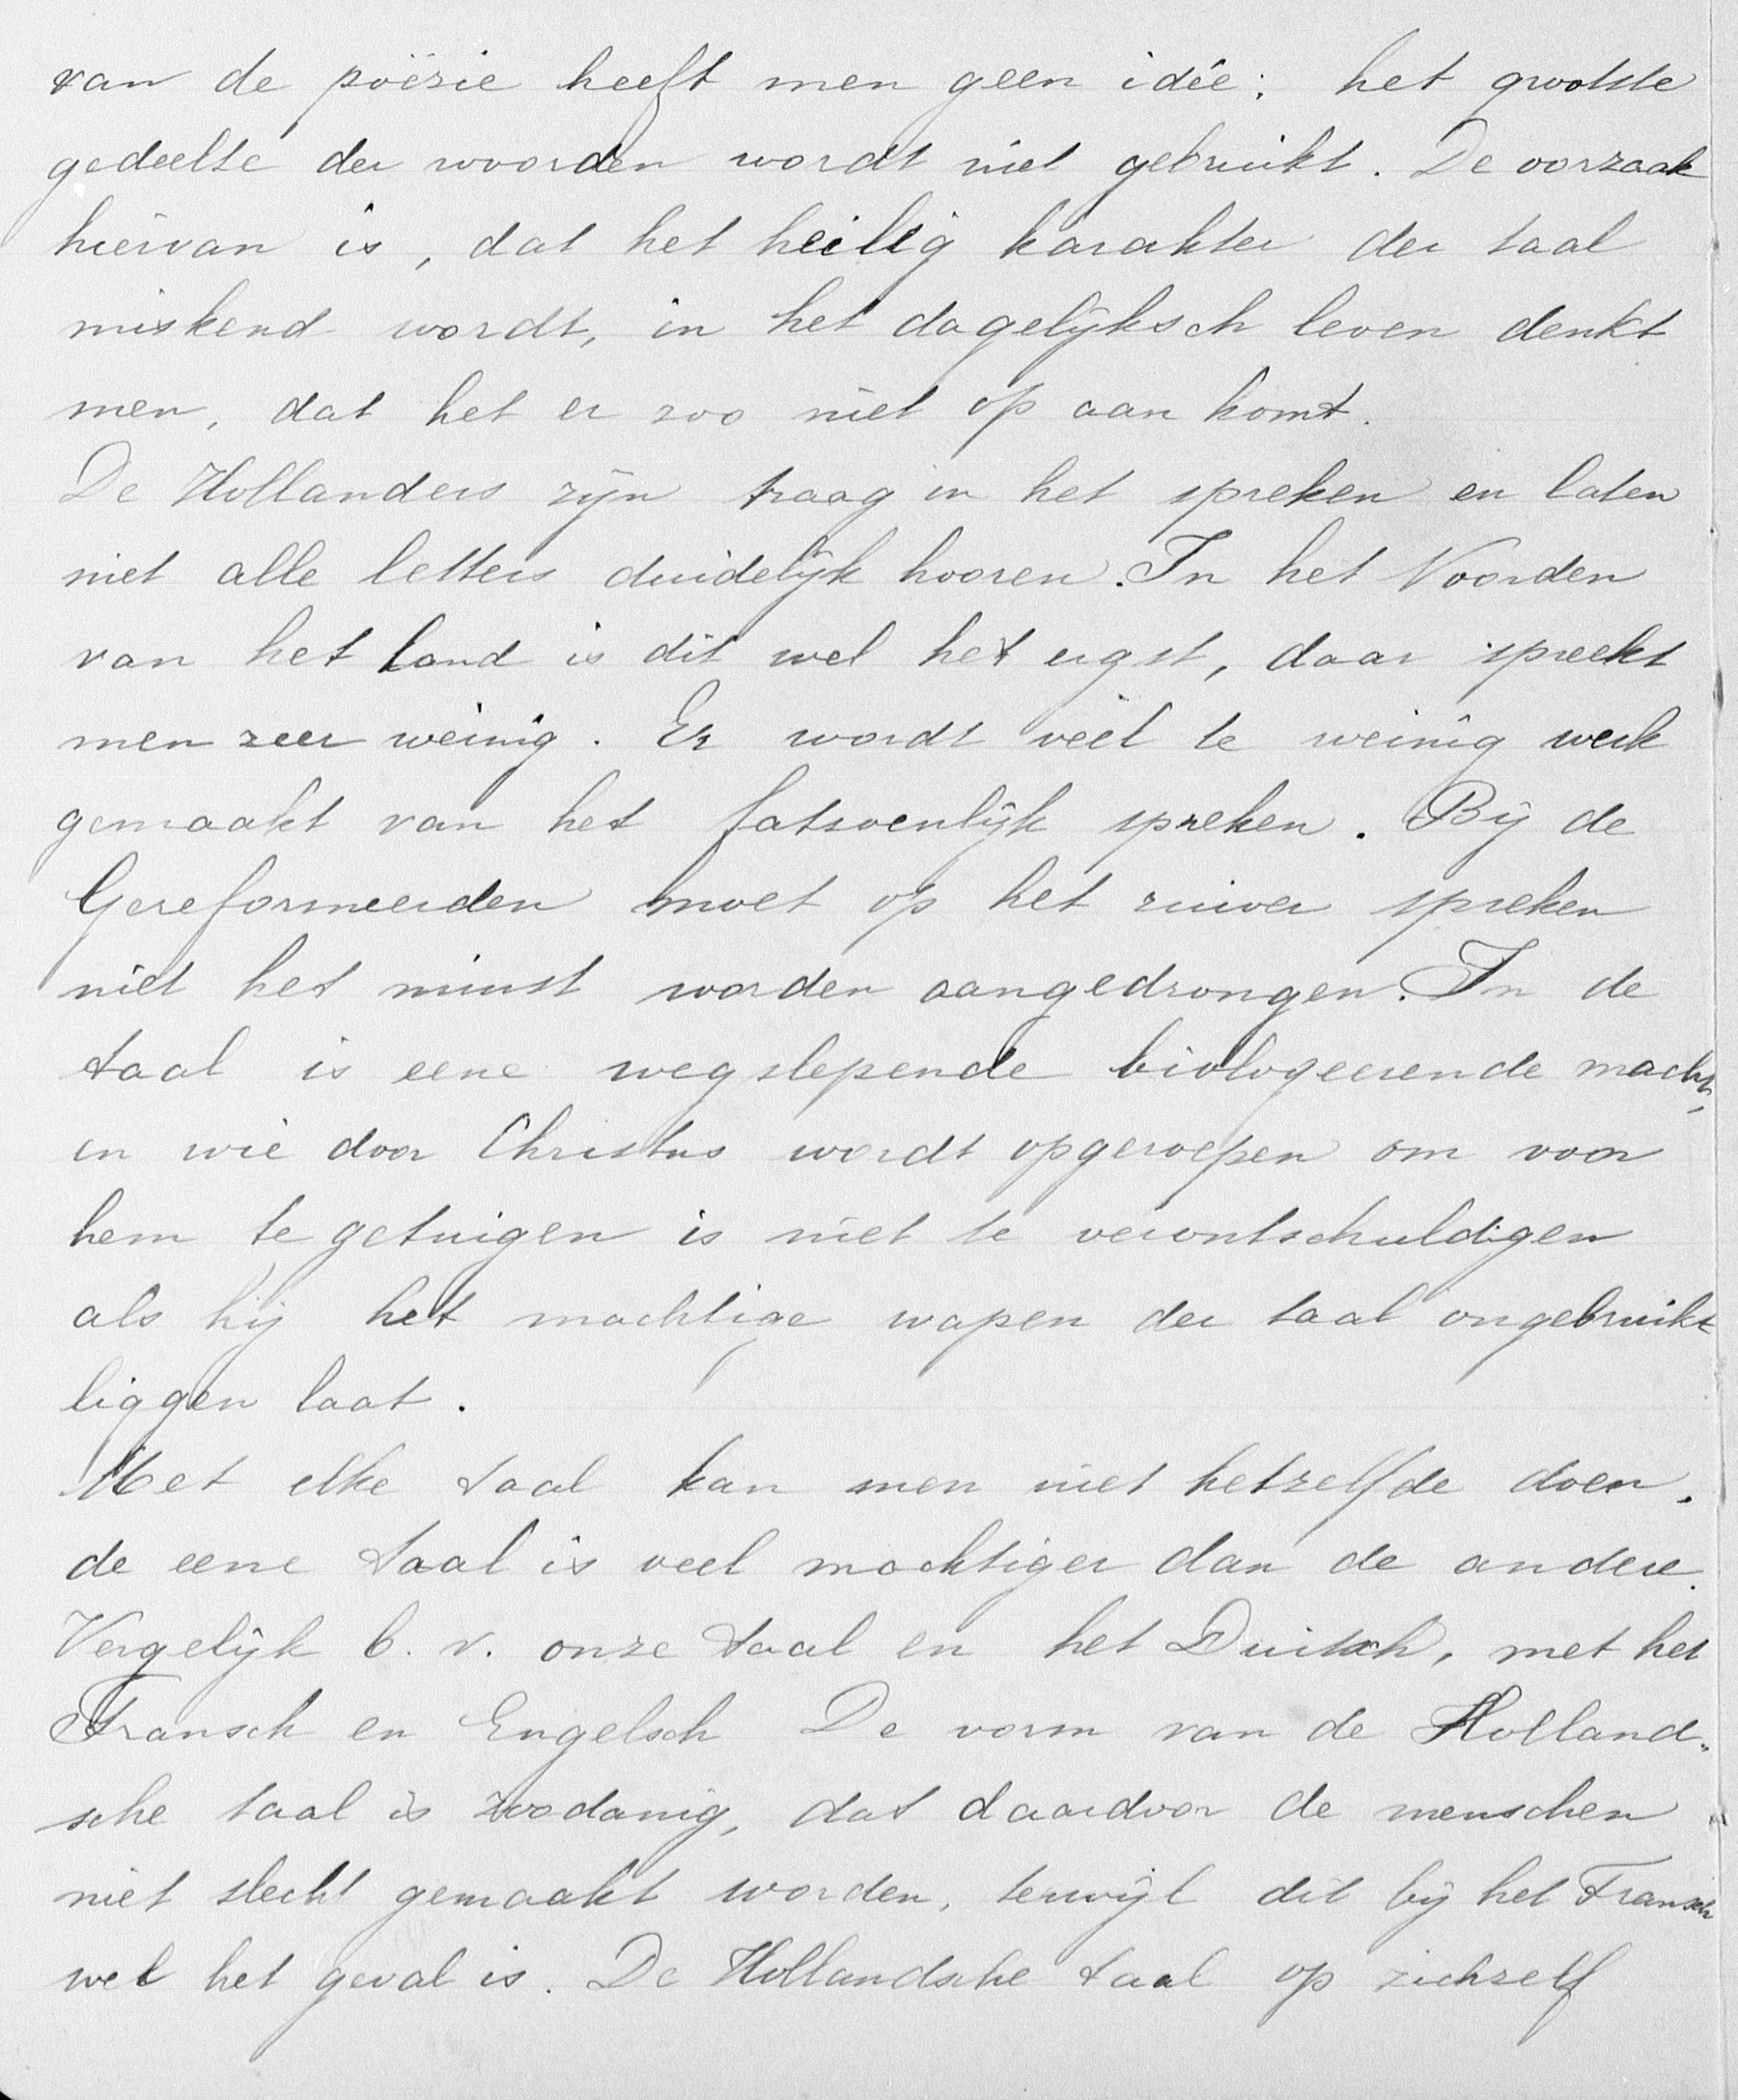 van de poëzie heeft men geen idée; het grootste
gedeelte der woorden wordt niet gebruikt. De oorzaak
hiervan is, dat het heilig karakter der taal
miskend wordt, in het dagelijksch leven denkt
men, dat het er zoo niet op aan komt.
De Hollanders zijn traag in het spreken en laten
niet alle letters duidelijk hooren. In het Noorden
van het land is dit wel het ergst, daar spreekt
men zeer weinig. Er wordt veel te weinig werk
gemaakt van het fatsoenlijk spreken. Bij de
Gereformeerden moet op het zuiver spreken
niet het minst worden aangedrongen. In de
taal is eene wegslepende biologeerende macht,
en wie door Christus wordt opgeroepen om voor
hem te getuigen is niet te verontschuldigen
als hij het machtige wapen der taal ongebruikt
liggen laat.
Met elke taal kan men niet hetzelfde doen.
de eene taal is veel machtiger dan de andere.
Vergelijk b. v. onze taal en het Duitsch, met het
Fransch en Engelsch De vorm van de Holland„
sche taal is zoodanig, dat daardoor de menschen
niet slecht gemaakt worden, terwijl dit bij het Fransch
wel het geval is. De Hollandsche taal op zichzelf